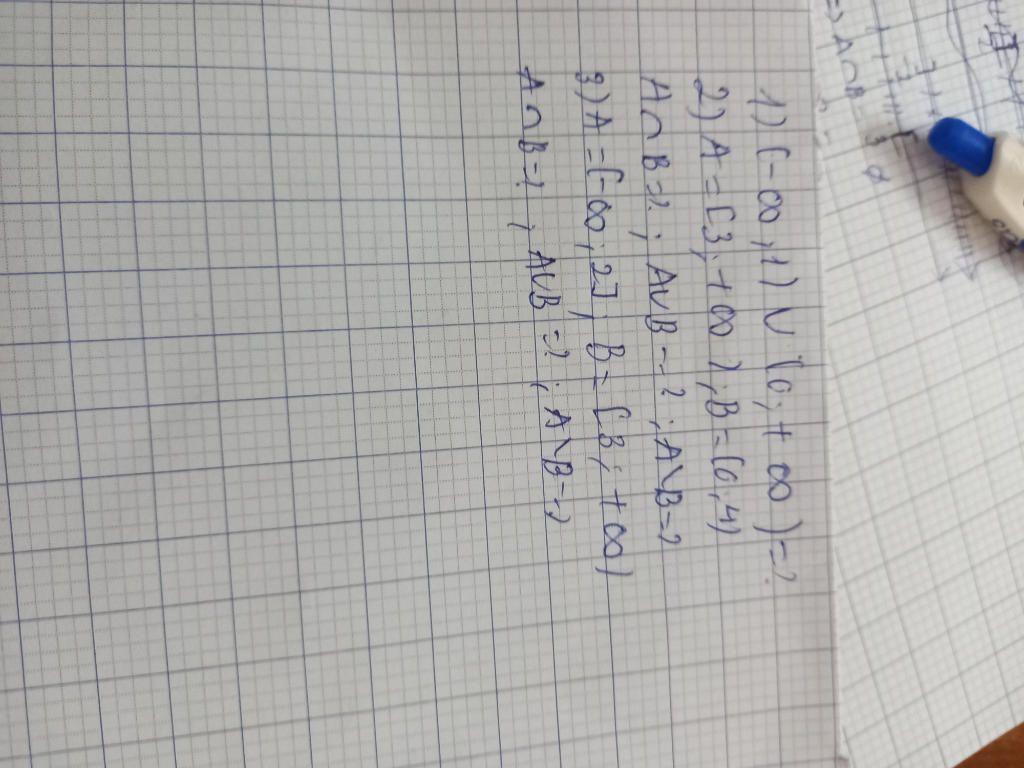 1) (-∞; 1) ∪ (0; +∞) = ?
2) A = [3; +∞), B = (0; 4)
A∩B = ?; A∪B = ?; A\B = ?
3) A = (-∞; 2]; B = [3; +∞)
A∩B = ?; A∪B = ?; A\B = ?
=> A∩B